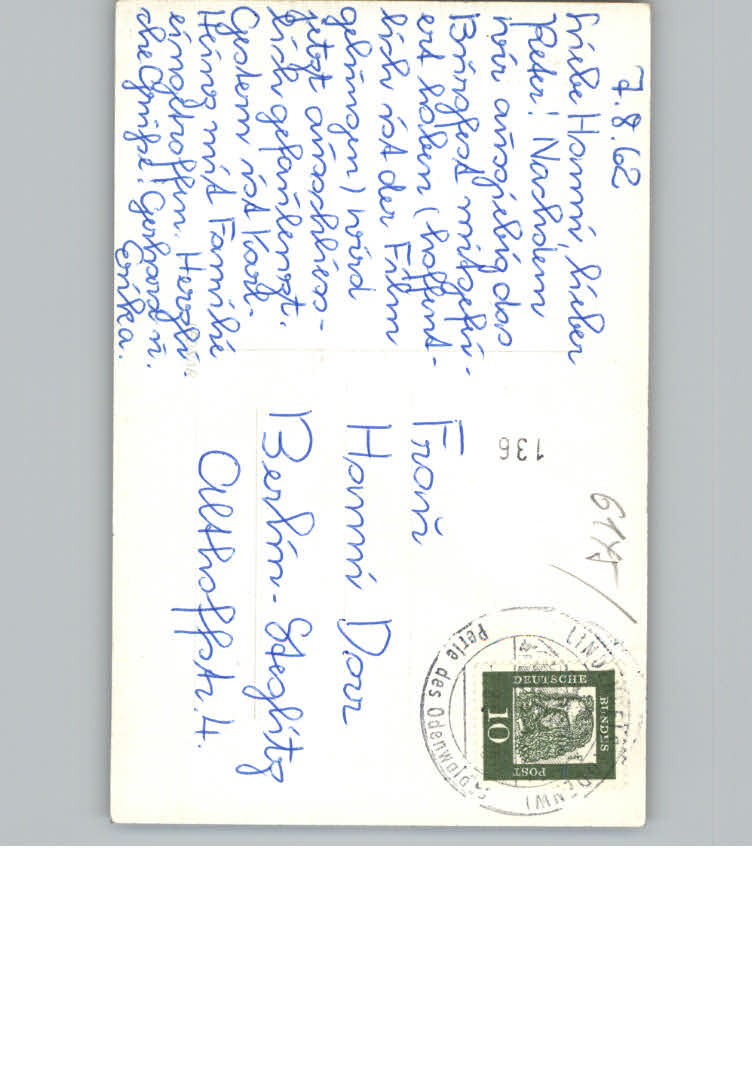 7.8.62
Liebe Hanni, lieber
Peter! Nachdem
wir ausgiebig das
Burgfest mitgefei-
ert haben (hoffent-
lich ist der Film
gelungen) wird
jetzt ausschliess-
lich gefaulenzt.
Gestern ist Karl-
Heinz mit Familie
eingetroffen. Herzli-
che Grüße! Gerhard u.
Erika.
136
Frau
Hanni Dorr
Berlin-Steglitz
Althoffstr. 4.
DEUTSCHE
BUNDES
POST
10
Perle des Odenwaldes